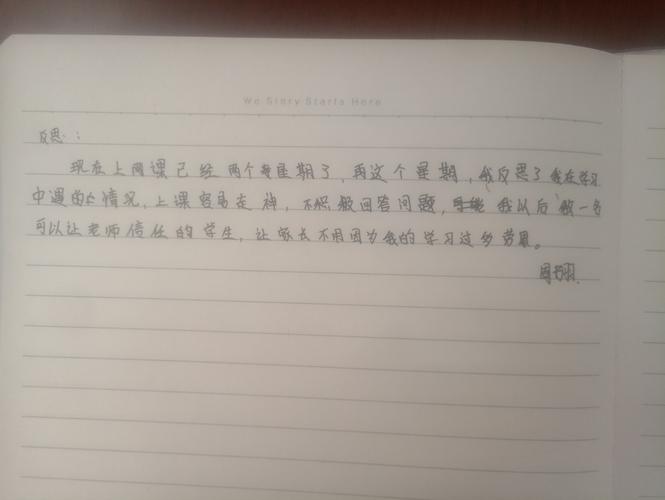 We Story Starts Here
反思：
现在上网课已经两个星期了，再这个星期，我反思了我在学习
中遇的情况，上课容易走神，不积极回答问题，我以后做一名
可以让老师信任的学生，让家长不用因为我的学习这么劳累。
周翊